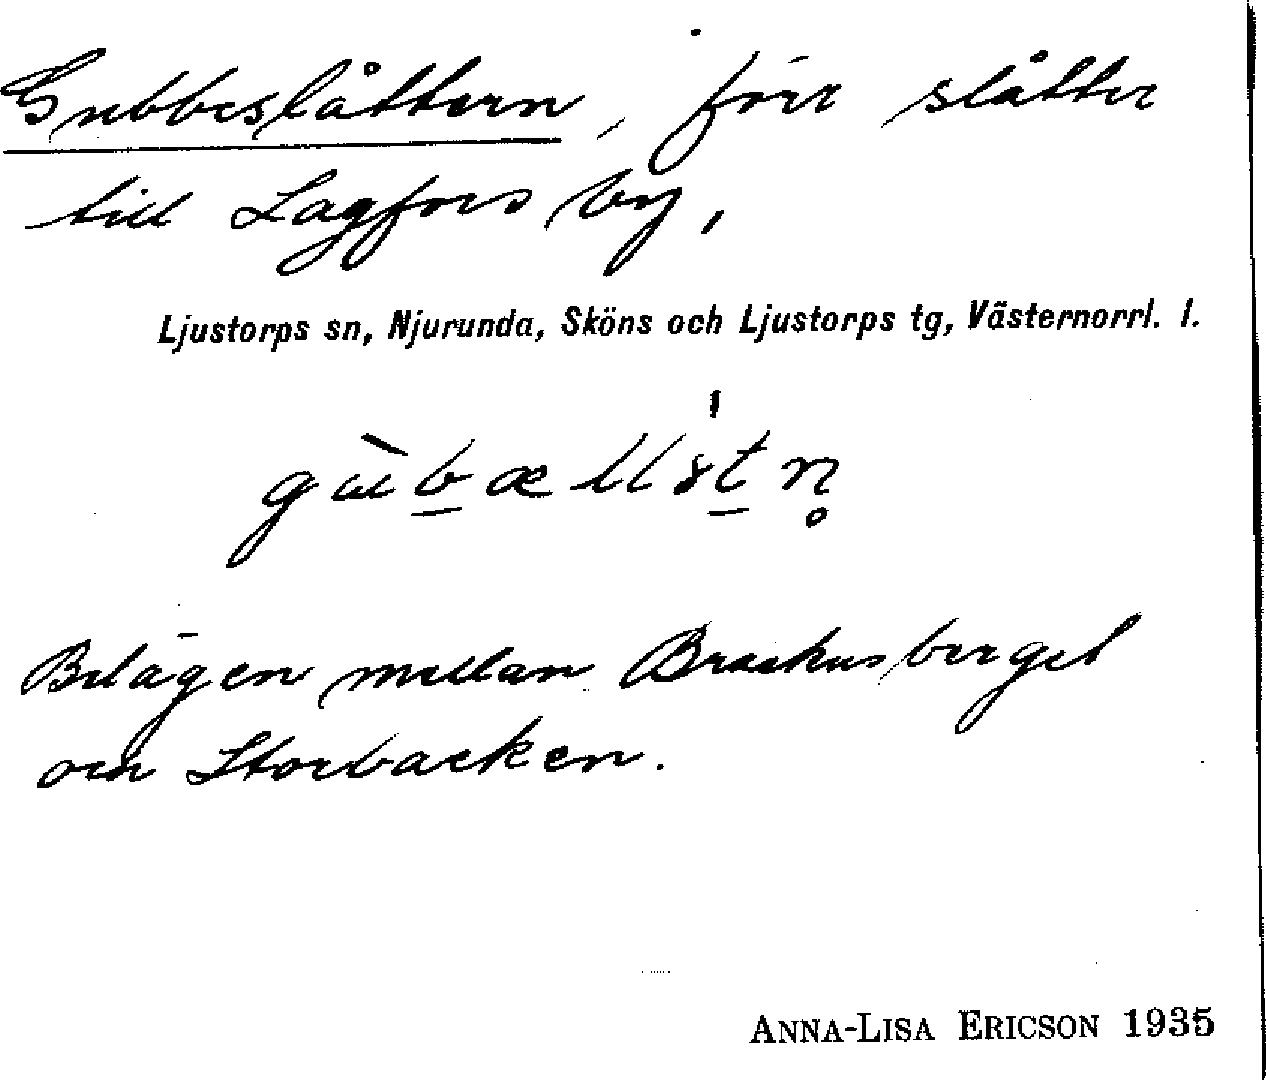 Gubbeslåttern, förr slåtter
till Lagfors by,
Ljustorps sn, Njurunda, Sköns och Ljustorps tg, Västernorrl. l.
Belägen mellan Brackusberget
och Storbacken.
ANNA-LISA ERICSON 1935